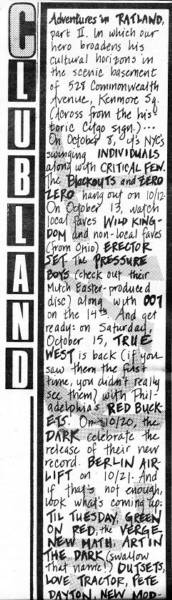 CLUBLAND
Adventures in RATLAND,
part II. In which our
hero broadens his
cultural horizons in
the scenic basement
of 528 Commonwealth
Avenue, Kenmore Sq.
(Across from the his-
toric Citgo sign.)...
On October 8, it's NYC's
swinging INDIVIDUALS
along with CRITICAL FEW.
The BLACKOUTS and ZERO
ZERO hang out on 10/12.
On October 13, watch
local faves WILD KING-
DOM and non-local faves
(from Ohio) ERECTOR
SET. The PRESSURE
BOYS (check out their
Mitch Easter-produced
disc) along with 007
on the 14th. And get
ready: on Saturday,
October 15, TRUE
WEST is back (if you
saw them the first
time, you didn't really
see them) with Phil-
adelphia's RED BUCK-
ETS. On 10/20, the
DARK celebrate the
release of their new
record. BERLIN AIR-
LIFT on 10/21. And
if that's not enough,
look what's coming up:
'TIL TUESDAY, GREEN
ON RED, the VERGE,
NEW MATH, ART IN
THE DARK (swallow
that name!) OUTSETS,
LOVE TRACTOR, PETE
DAYTON, NEW MOD-